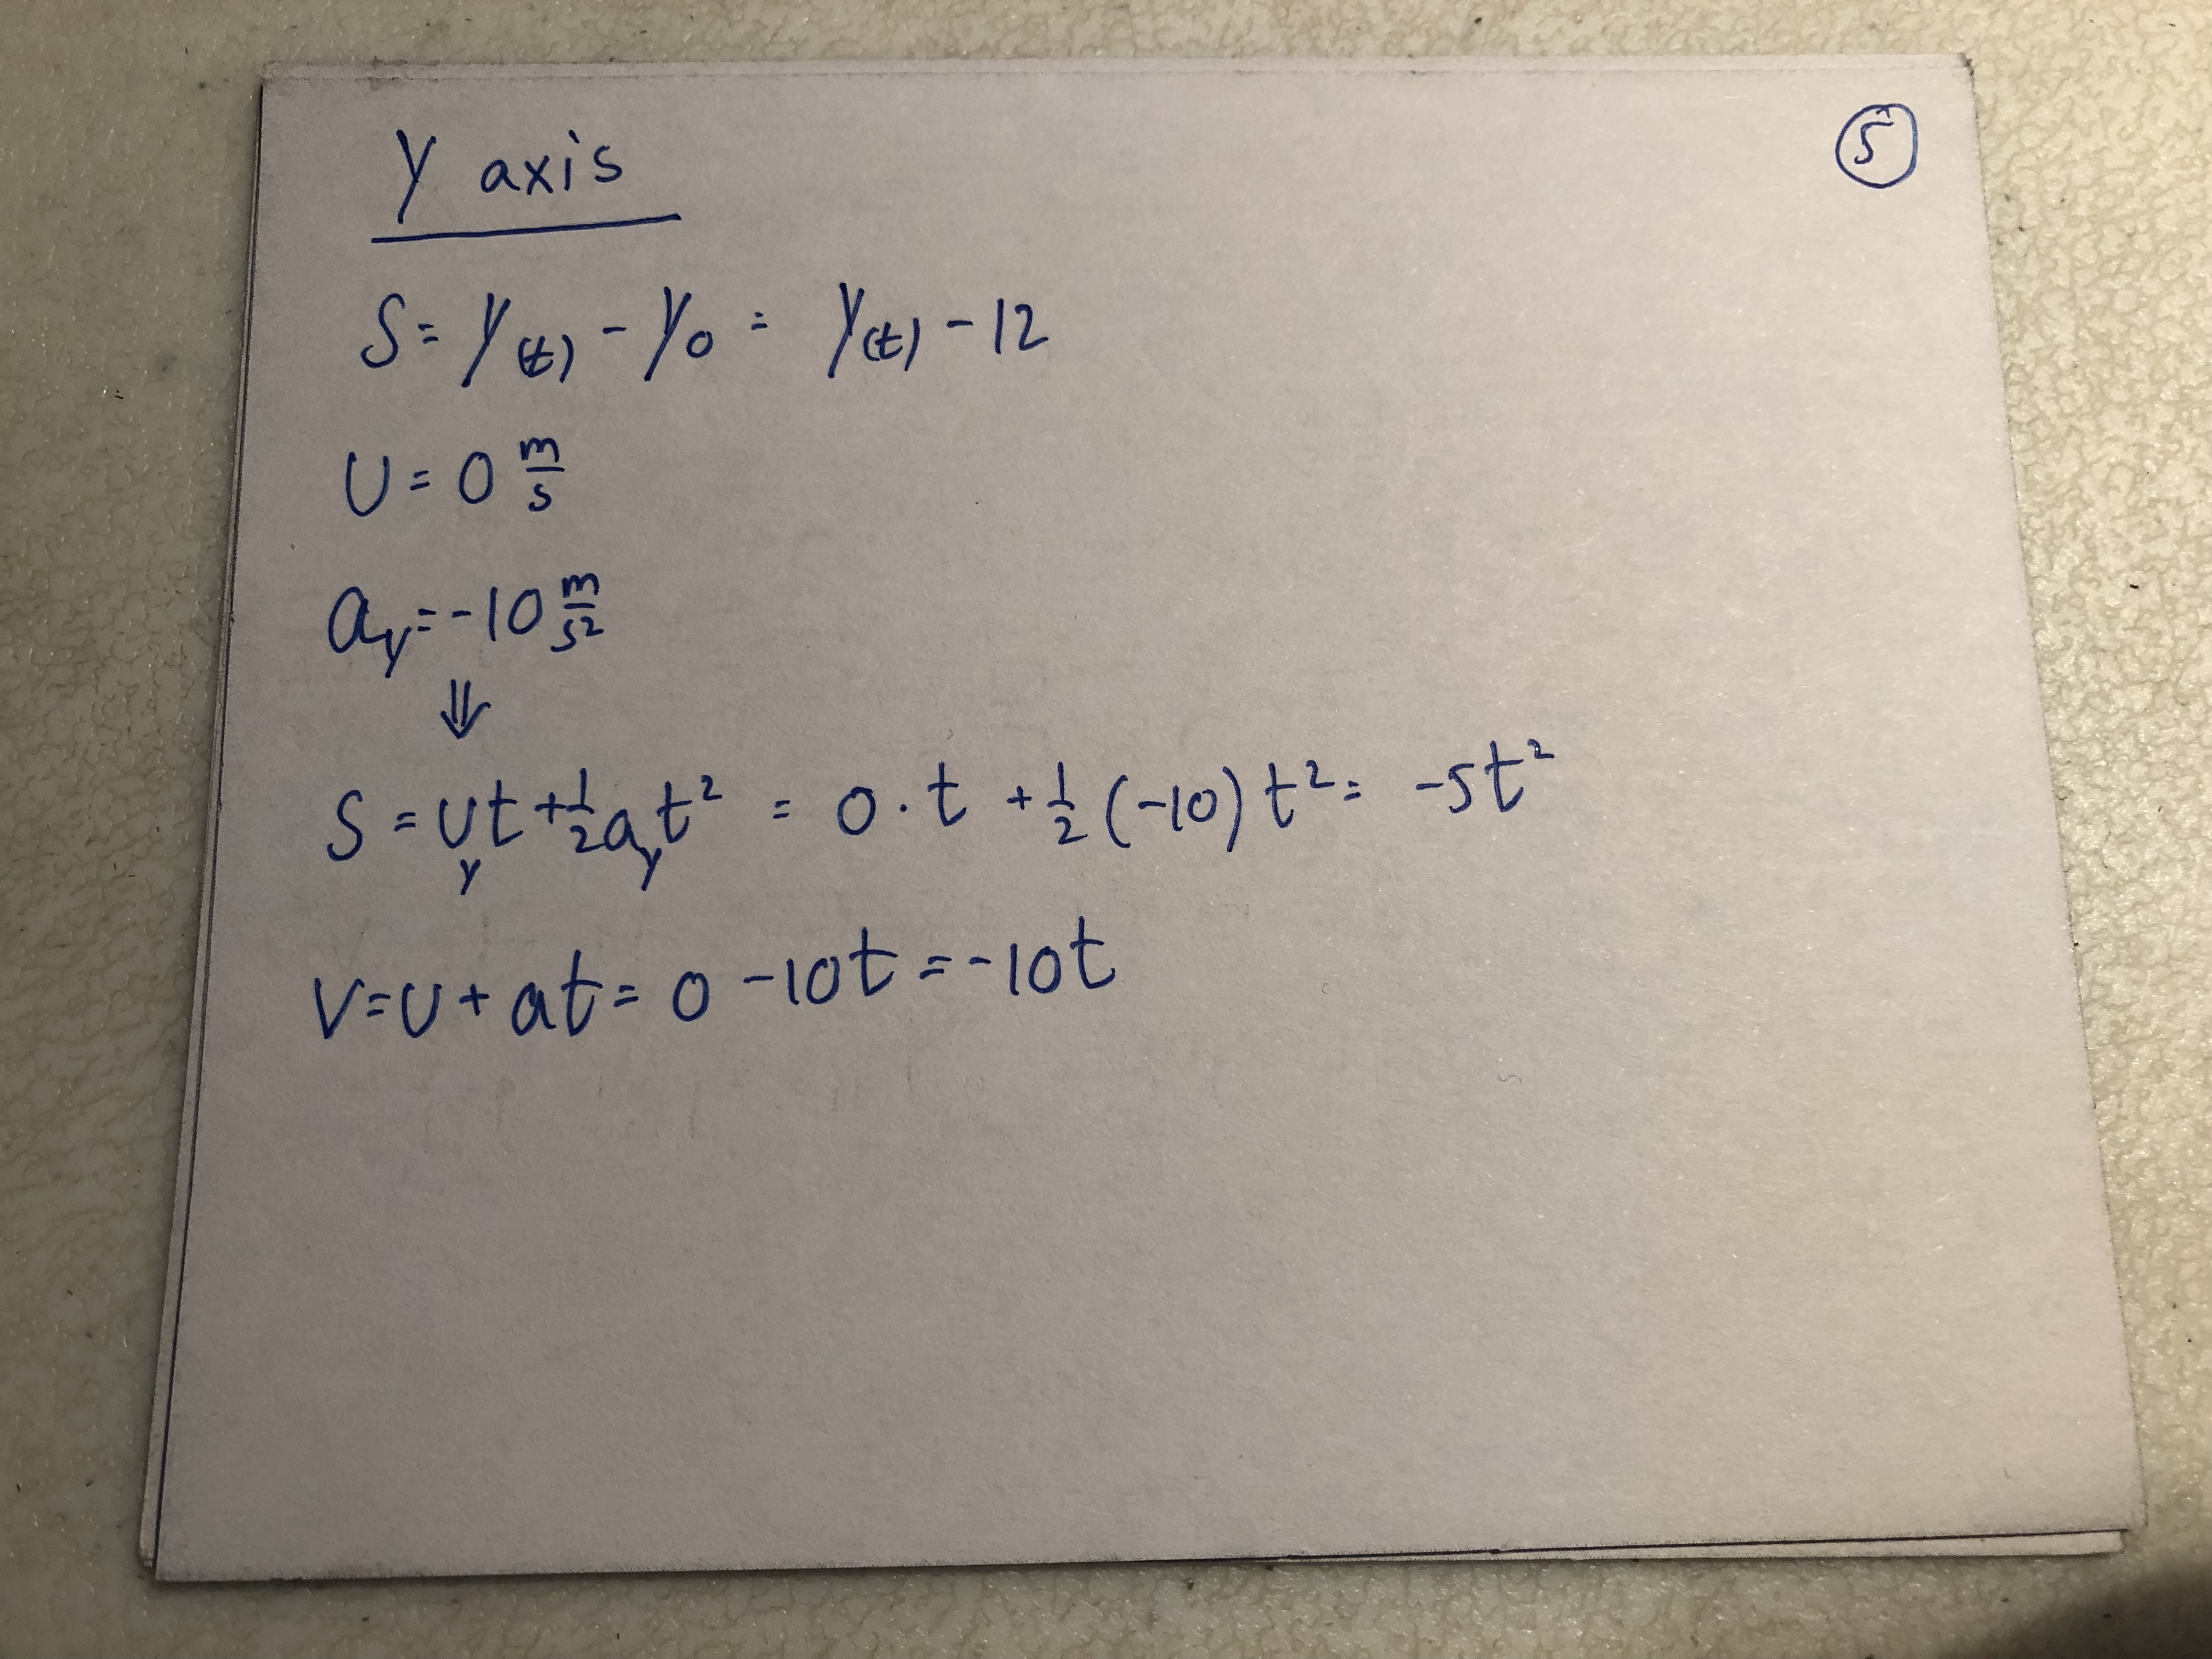 Y axis
5
S = y(t) - y₀ = y(t) - 12
U = 0 m/s
a_y = -10 m/s²
⇓
S = U_y t + ½ a_y t² = 0 · t + ½ (-10) t² = -5t²
V = U + at = 0 - 10t = -10t